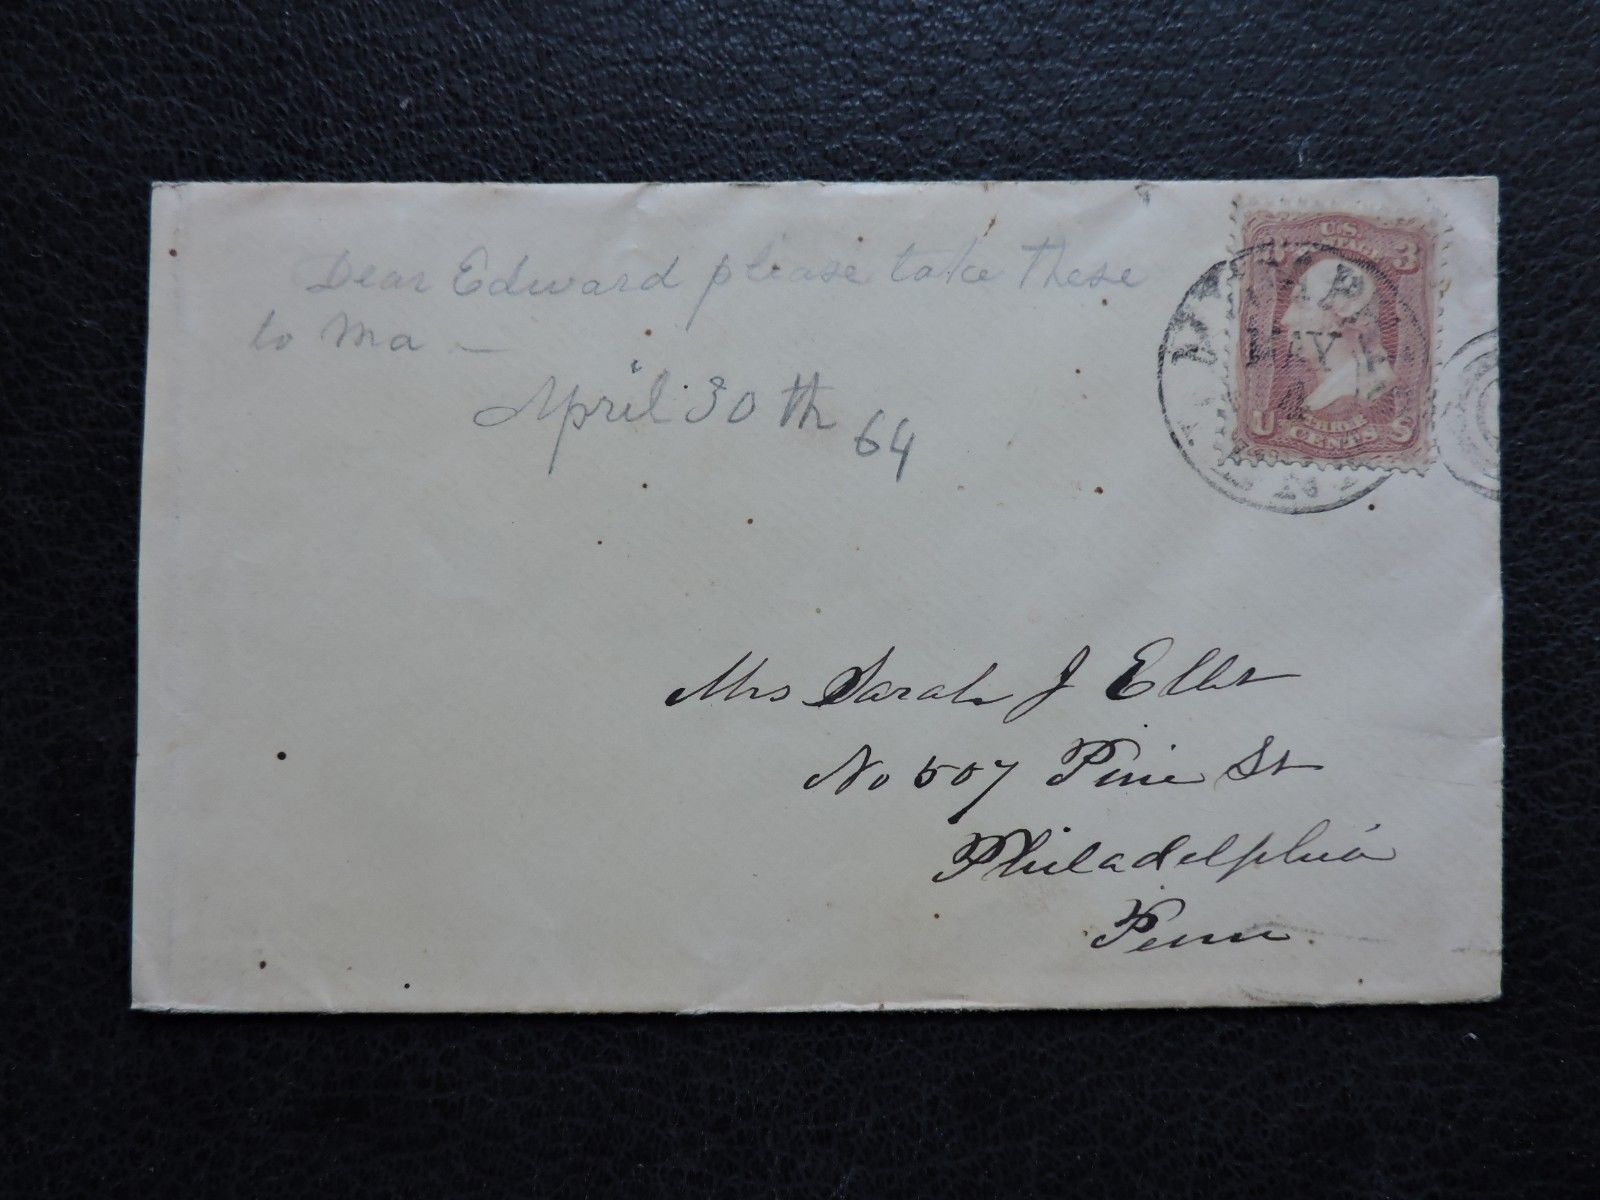 Dear Edward please take these
to Ma —
April 30th 64
U.S. POSTAGE 3
MAY
U THREE CENTS S
Mrs Sarah J
No 507 Pine St
Philadelphia
Penn